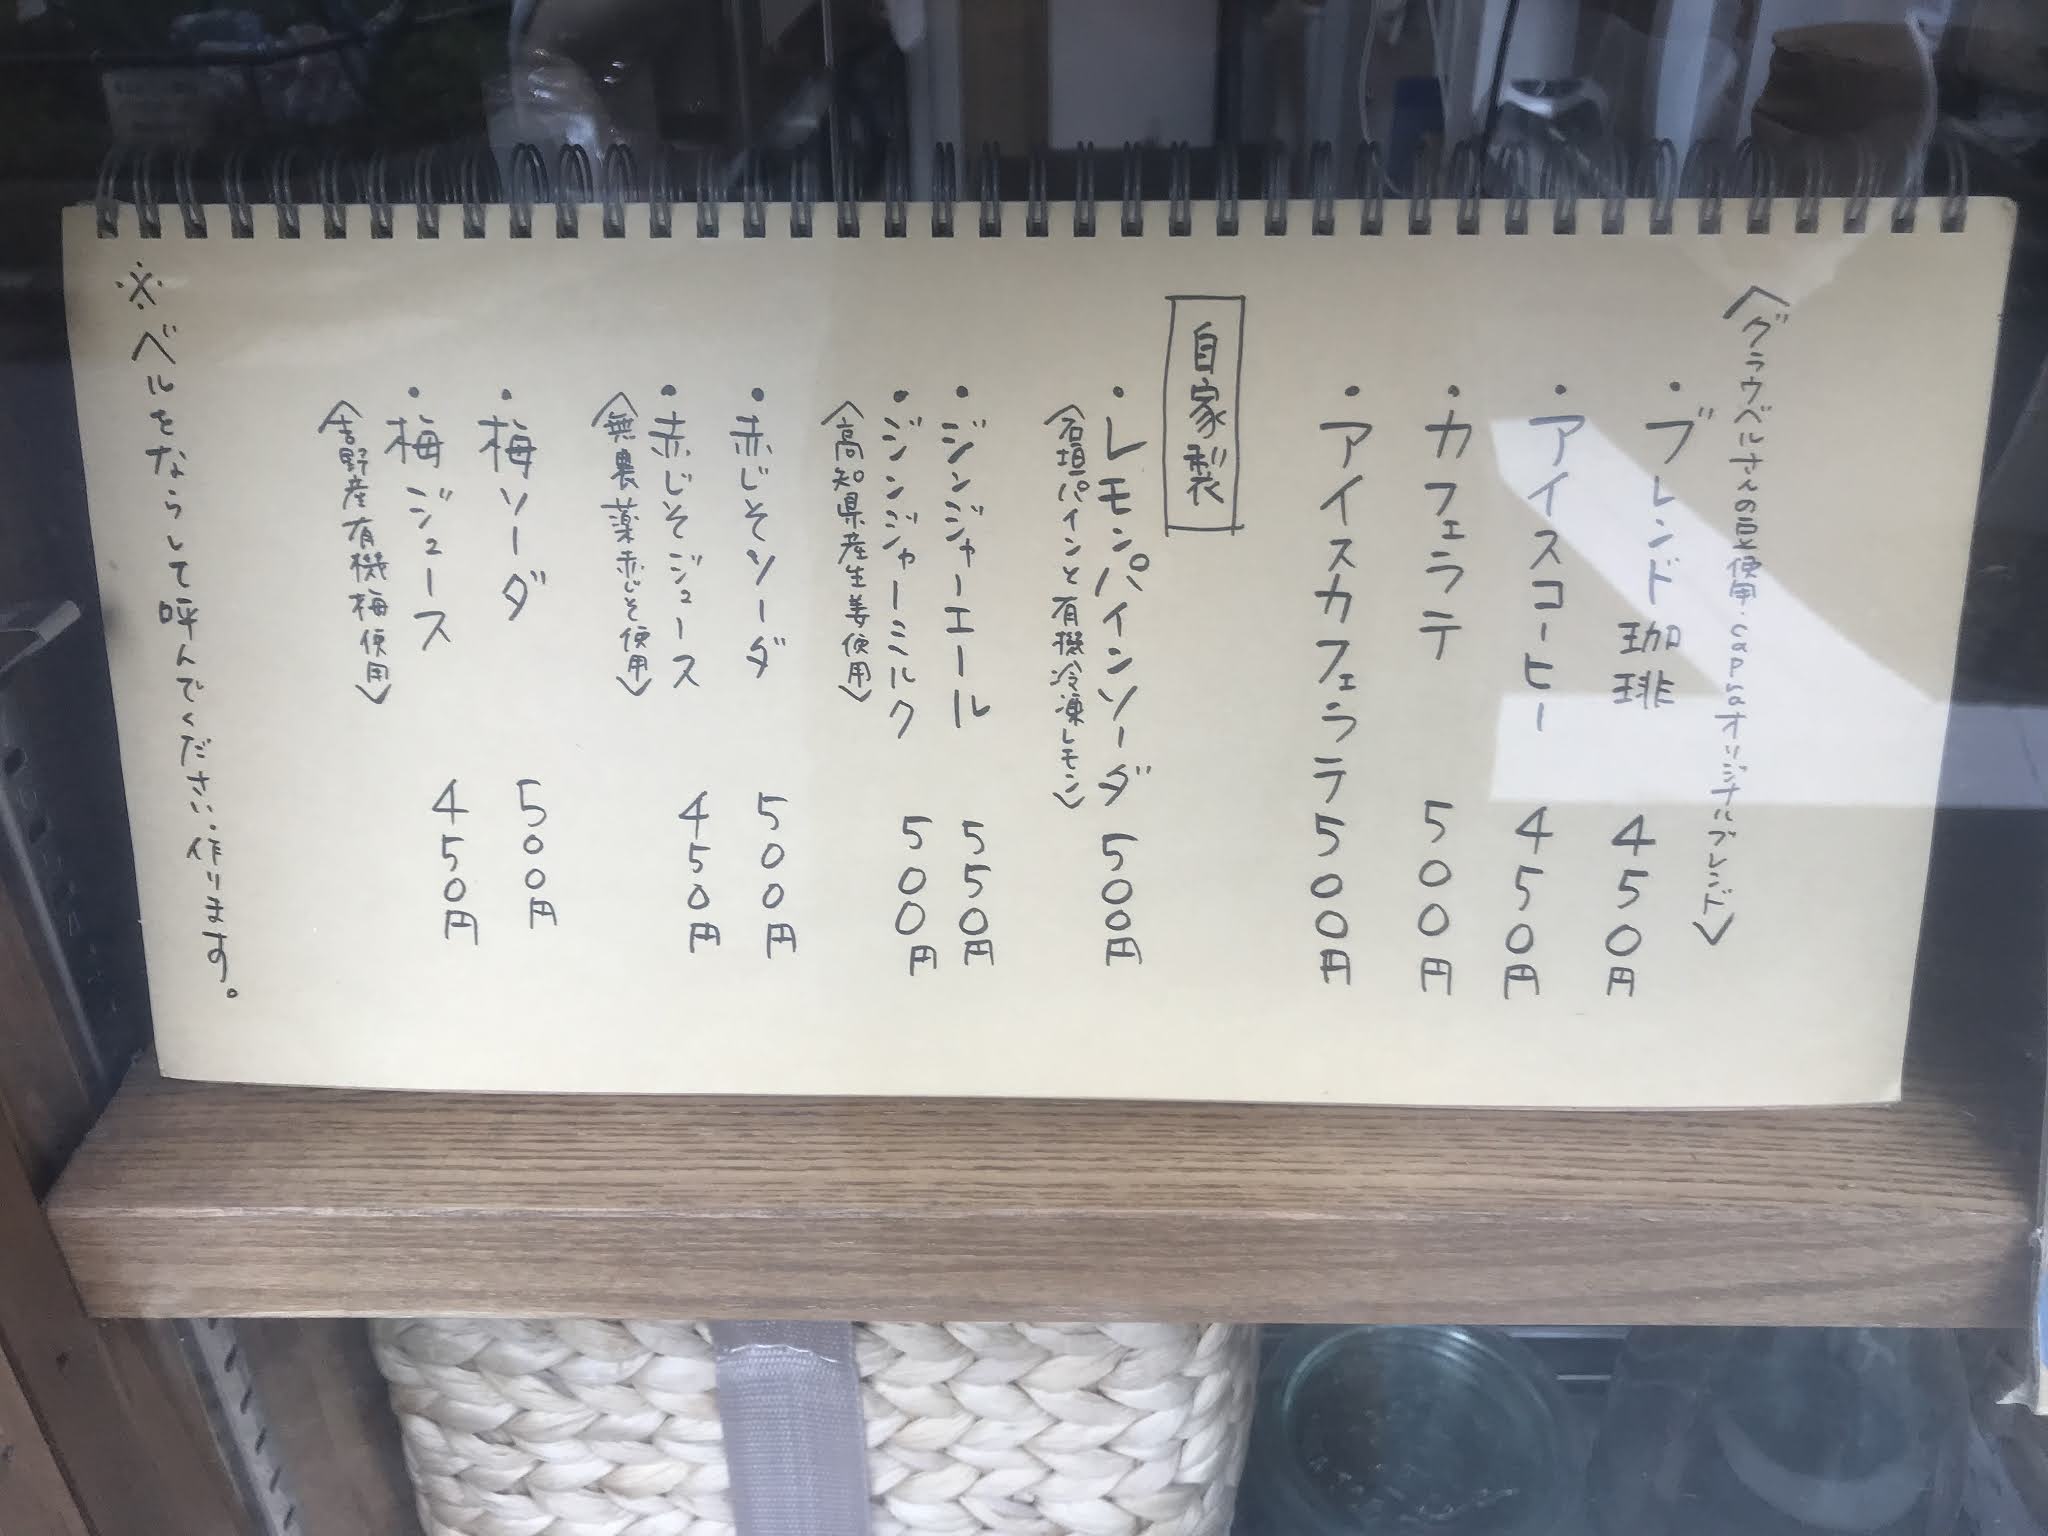 〈グラウベルさんの豆使用・capsaオリジナルブレンド〉
・ブレンド珈琲 450円
・アイスコーヒー 450円
・カフェラテ 500円
・アイスカフェラテ 500円
自家製
・レモンパインソーダ 500円
〈石垣パインと有機冷凍レモン〉
・ジンジャーエール 550円
・ジンジャーミルク 500円
〈高知県産生姜使用〉
・赤じそソーダ 500円
・赤じそジュース 450円
〈無農薬赤じそ使用〉
・梅ソーダ 500円
・梅ジュース 450円
〈吉野産有機梅使用〉
※ベルをならして呼んでください。作ります。